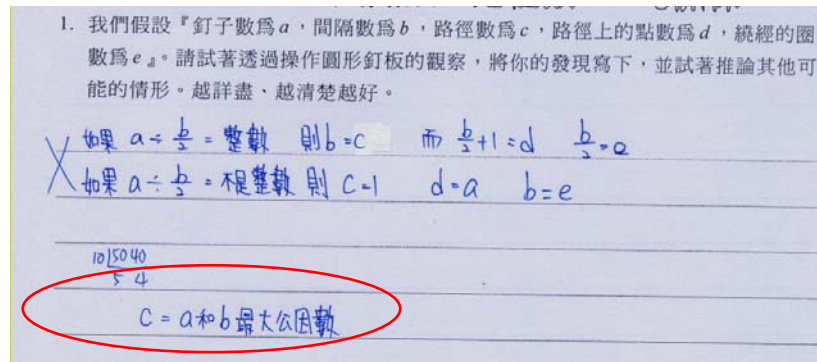 1. 我們假設『釘子數為a，間隔數為b，路徑數為c，路徑上的點數為d，繞經的圈
數為e』。請試著透過操作圓形釘板的觀察，將你的發現寫下，並試著推論其他可
能的情形。越詳盡、越清楚越好。
如果 a÷b/2=整數 則b=c 而 b/2+1=d b/2=e
如果 a÷b/2=不是整數 則 c=1 d=a b=e
10|50 40
5 4
c=a和b最大公因數